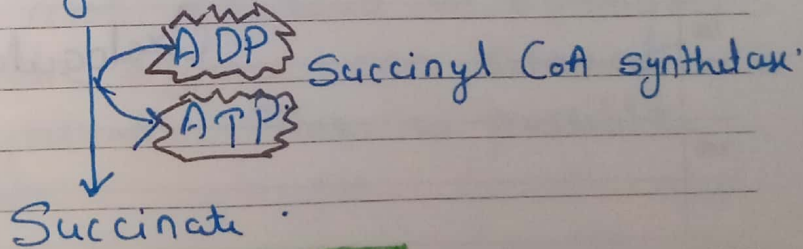 ADP
Succinyl CoA synthetase.
ATP
Succinate.